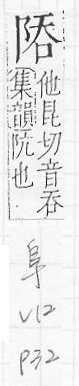 他昆切音吞
集韻阬也
阜
V12
P32